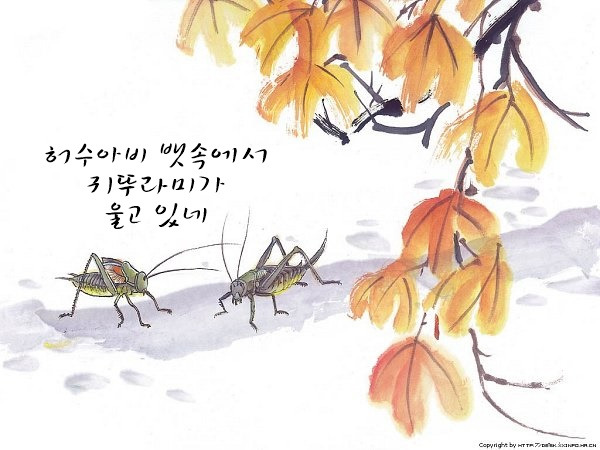 허수아비 뱃속에서
귀뚜라미가
울고 있네
Copyright by